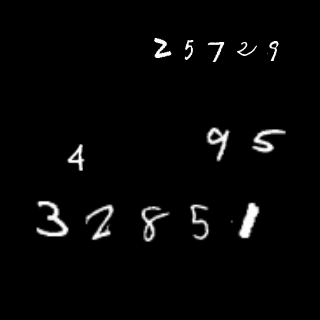 25729
95
4
32851